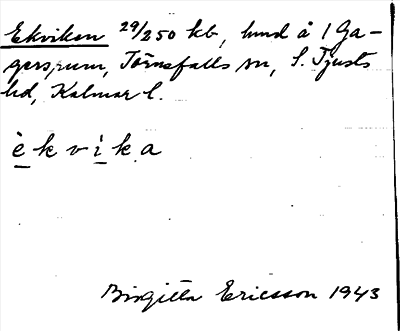 Ekviken 29/250 kb, hmd å 1 Ga-
gersrum, Törnsfalls sn, S. Tjusts
hd, Kalmar l.
èkvìka
Birgitta Ericsson 1943